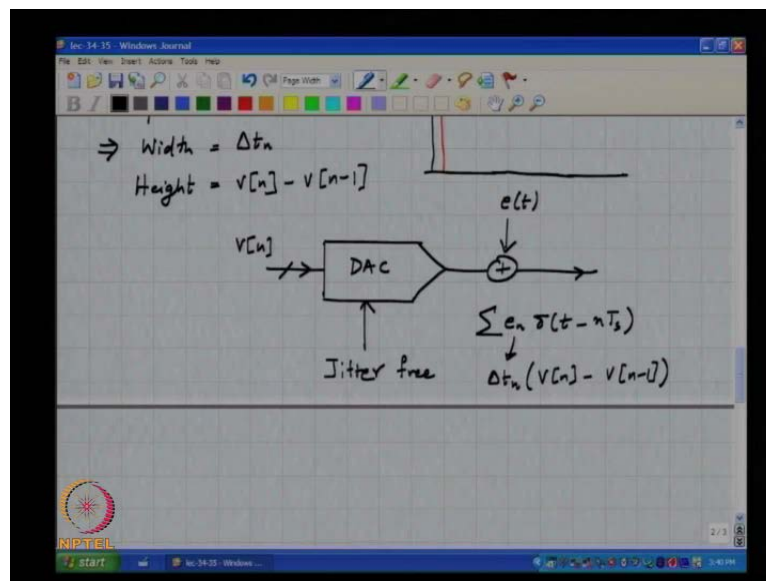 lec-34-35 - Windows Journal
File Edit View Insert Actions Tools Help
Page Width
B I
⇒ Width = Δtₙ
Height = V[n] - V[n-1]
e(t)
V[n]
DAC
+
Jitter free
∑ eₙ δ(t - nTₛ)
Δtₙ (V[n] - V[n-1])
2 / 3
NPTEL
start
lec-34-35 - Windows ...
3:40 PM